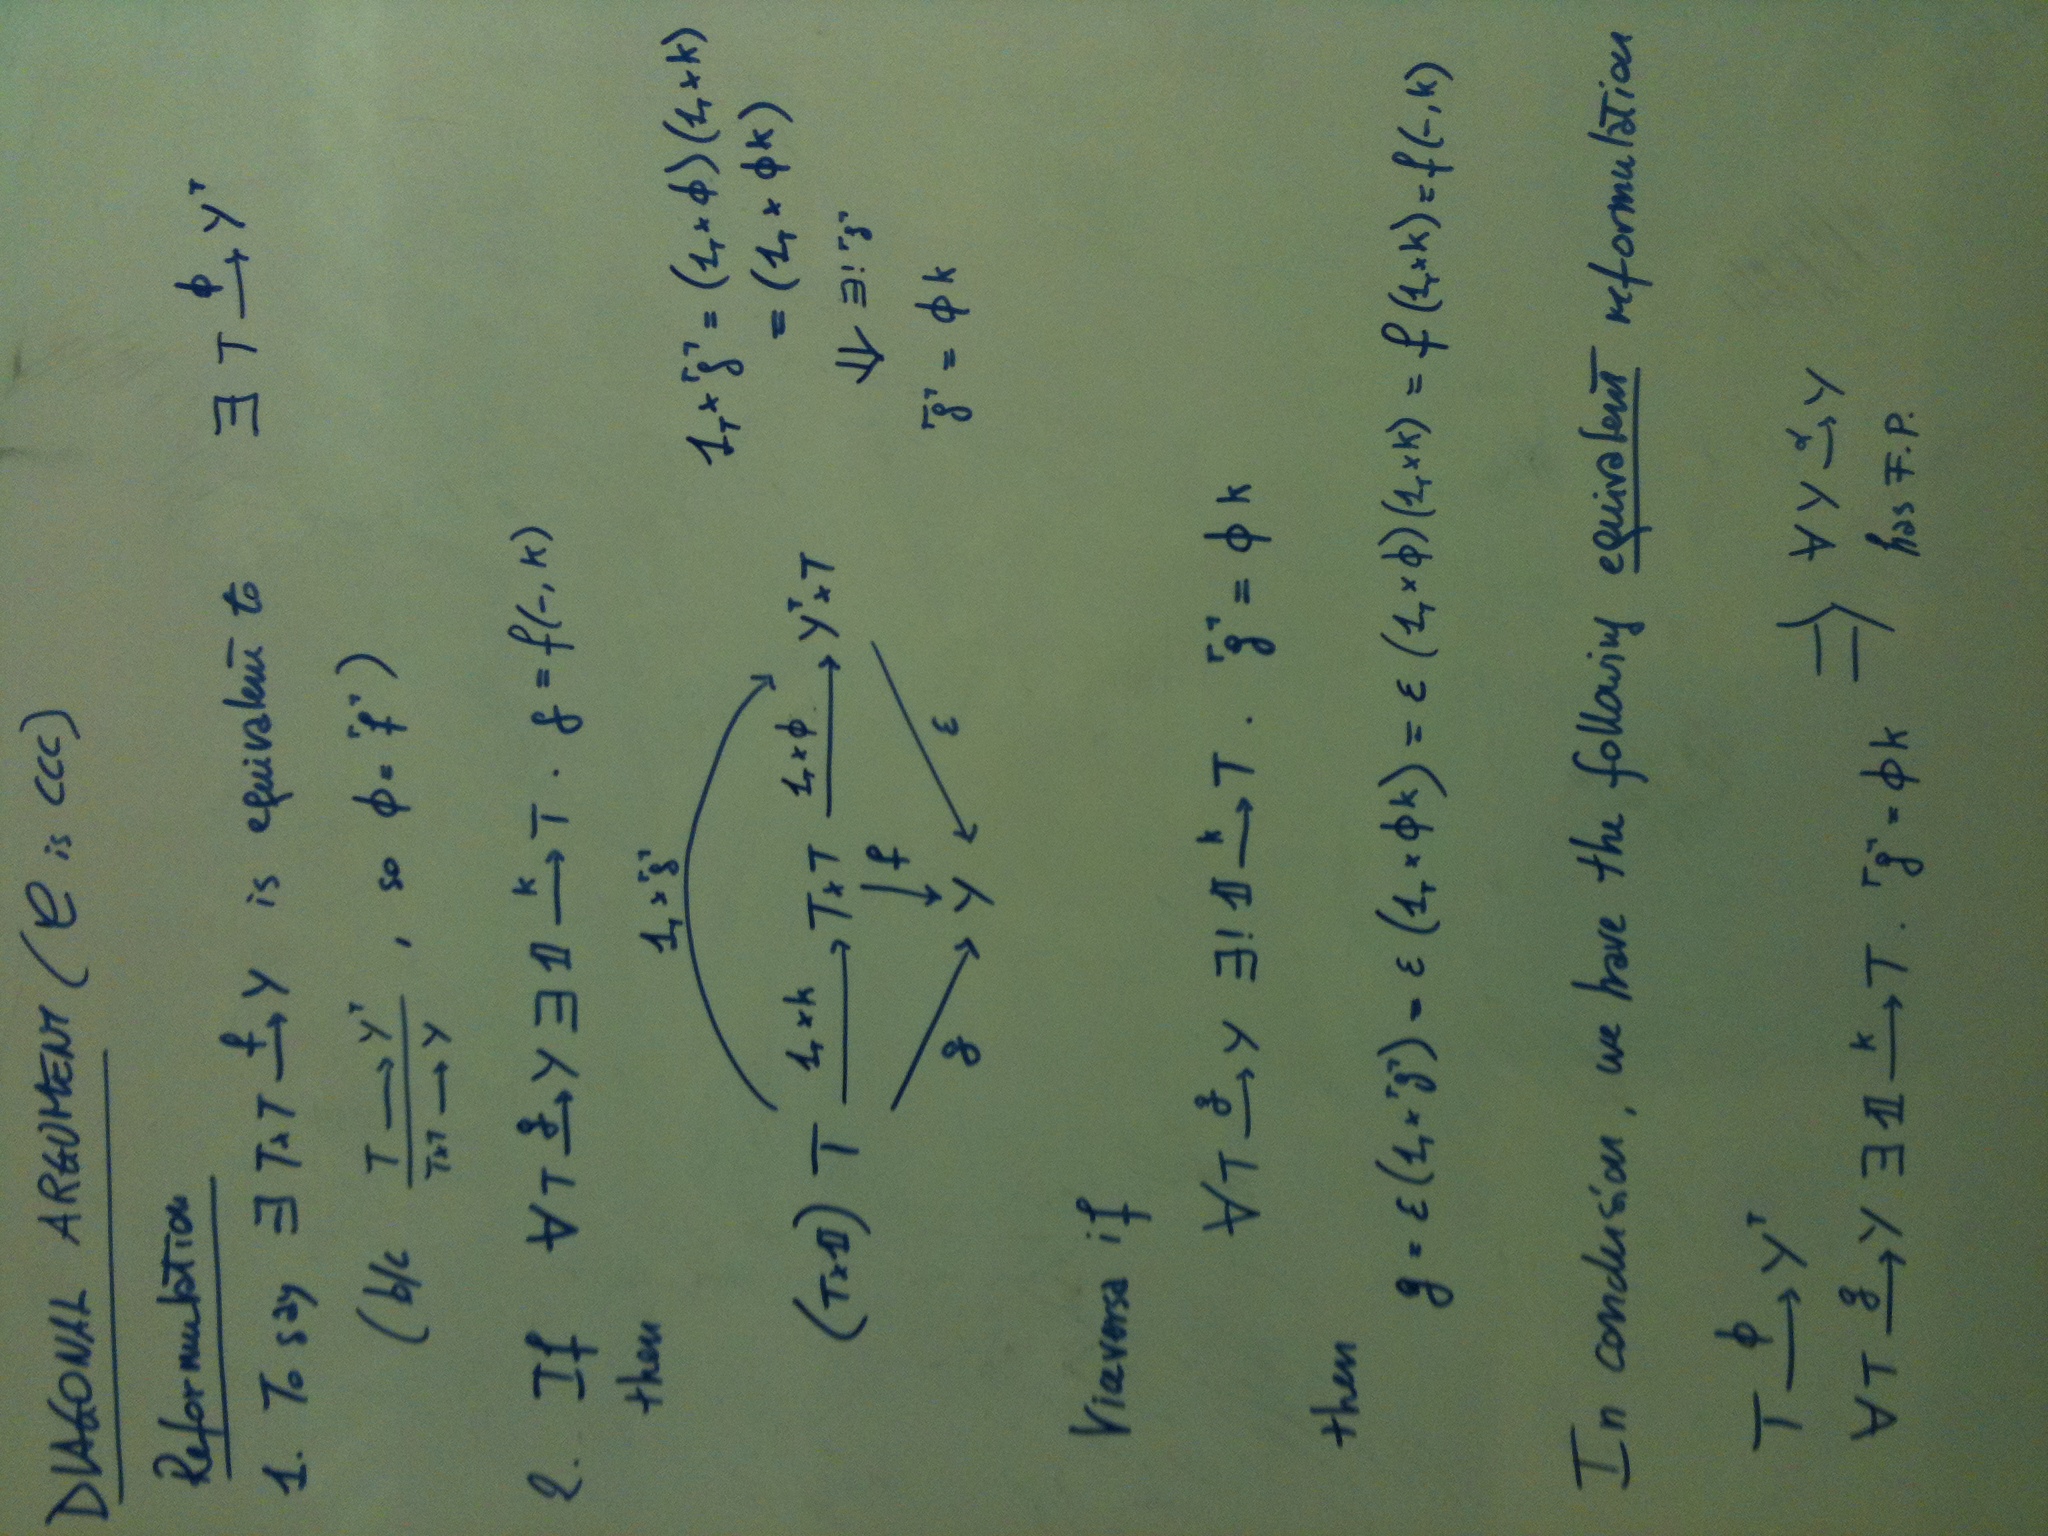 DIAGONAL ARGUMENT (𝒞 is CCC)
Reformulation
1. To say ∃ T×T —f→ Y is equivalent to ∃ T —ϕ→ Y^T
(b/c T → Y^T / T×T → Y , so ϕ = ⌜f⌝)
2. If ∀ T —g→ Y ∃ 𝟙 —k→ T . g = f(-, k)
then
1_T × ⌜g⌝
1_T × ⌜g⌝ = (1_T × ϕ)(1_T × k)
= (1_T × ϕk)
(T×𝟙) T —1_T × k→ T×T —1_T × ϕ→ Y^T × T
⇓ ∃! ⌜g⌝
↓ f
g Y ε
⌜g⌝ = ϕ k
Viceversa if
∀ T —g→ Y ∃! 𝟙 —k→ T . ⌜g⌝ = ϕ k
then
g = ε(1_T × ⌜g⌝) = ε (1_T × ϕk) = ε (1_T × ϕ)(1_T × k) = f (1_T × k) = f(-, k)
In conclusion, we have the following equivalent reformulation
T —ϕ→ Y^T
∀ T —g→ Y ∃ 𝟙 —k→ T . ⌜g⌝ = ϕ k ⇒ ∀ Y —α→ Y
has F.P.